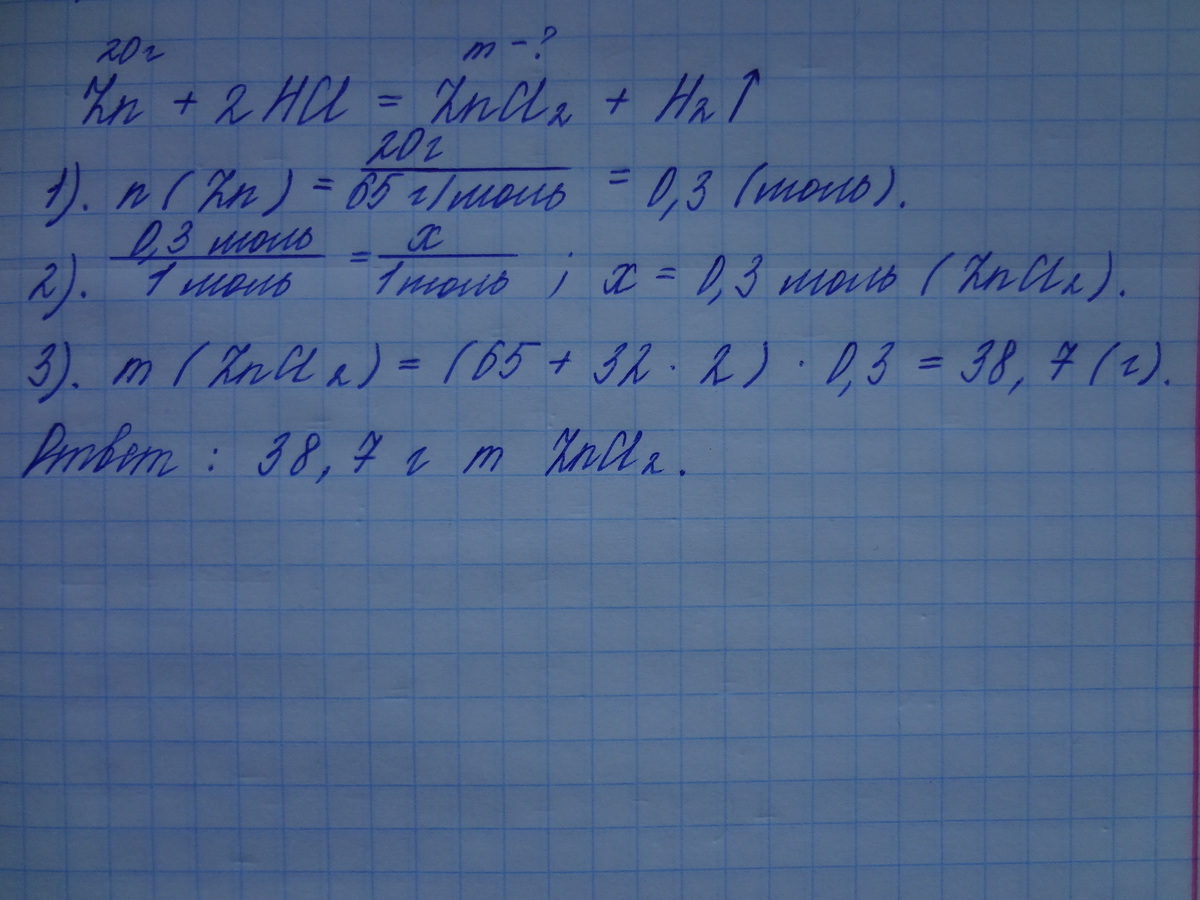 20г m - ?
Zn + 2 HCl = ZnCl₂ + H₂↑
1). n ( Zn ) = 20г / 65 г/моль = 0,3 (моль).
2). 0,3 моль / 1 моль = x / 1 моль ; x = 0,3 моль ( ZnCl₂ ).
3). m ( ZnCl₂ ) = (65 + 32 · 2 ) · 0,3 = 38,7 (г).
Ответ : 38,7 г m ZnCl₂.